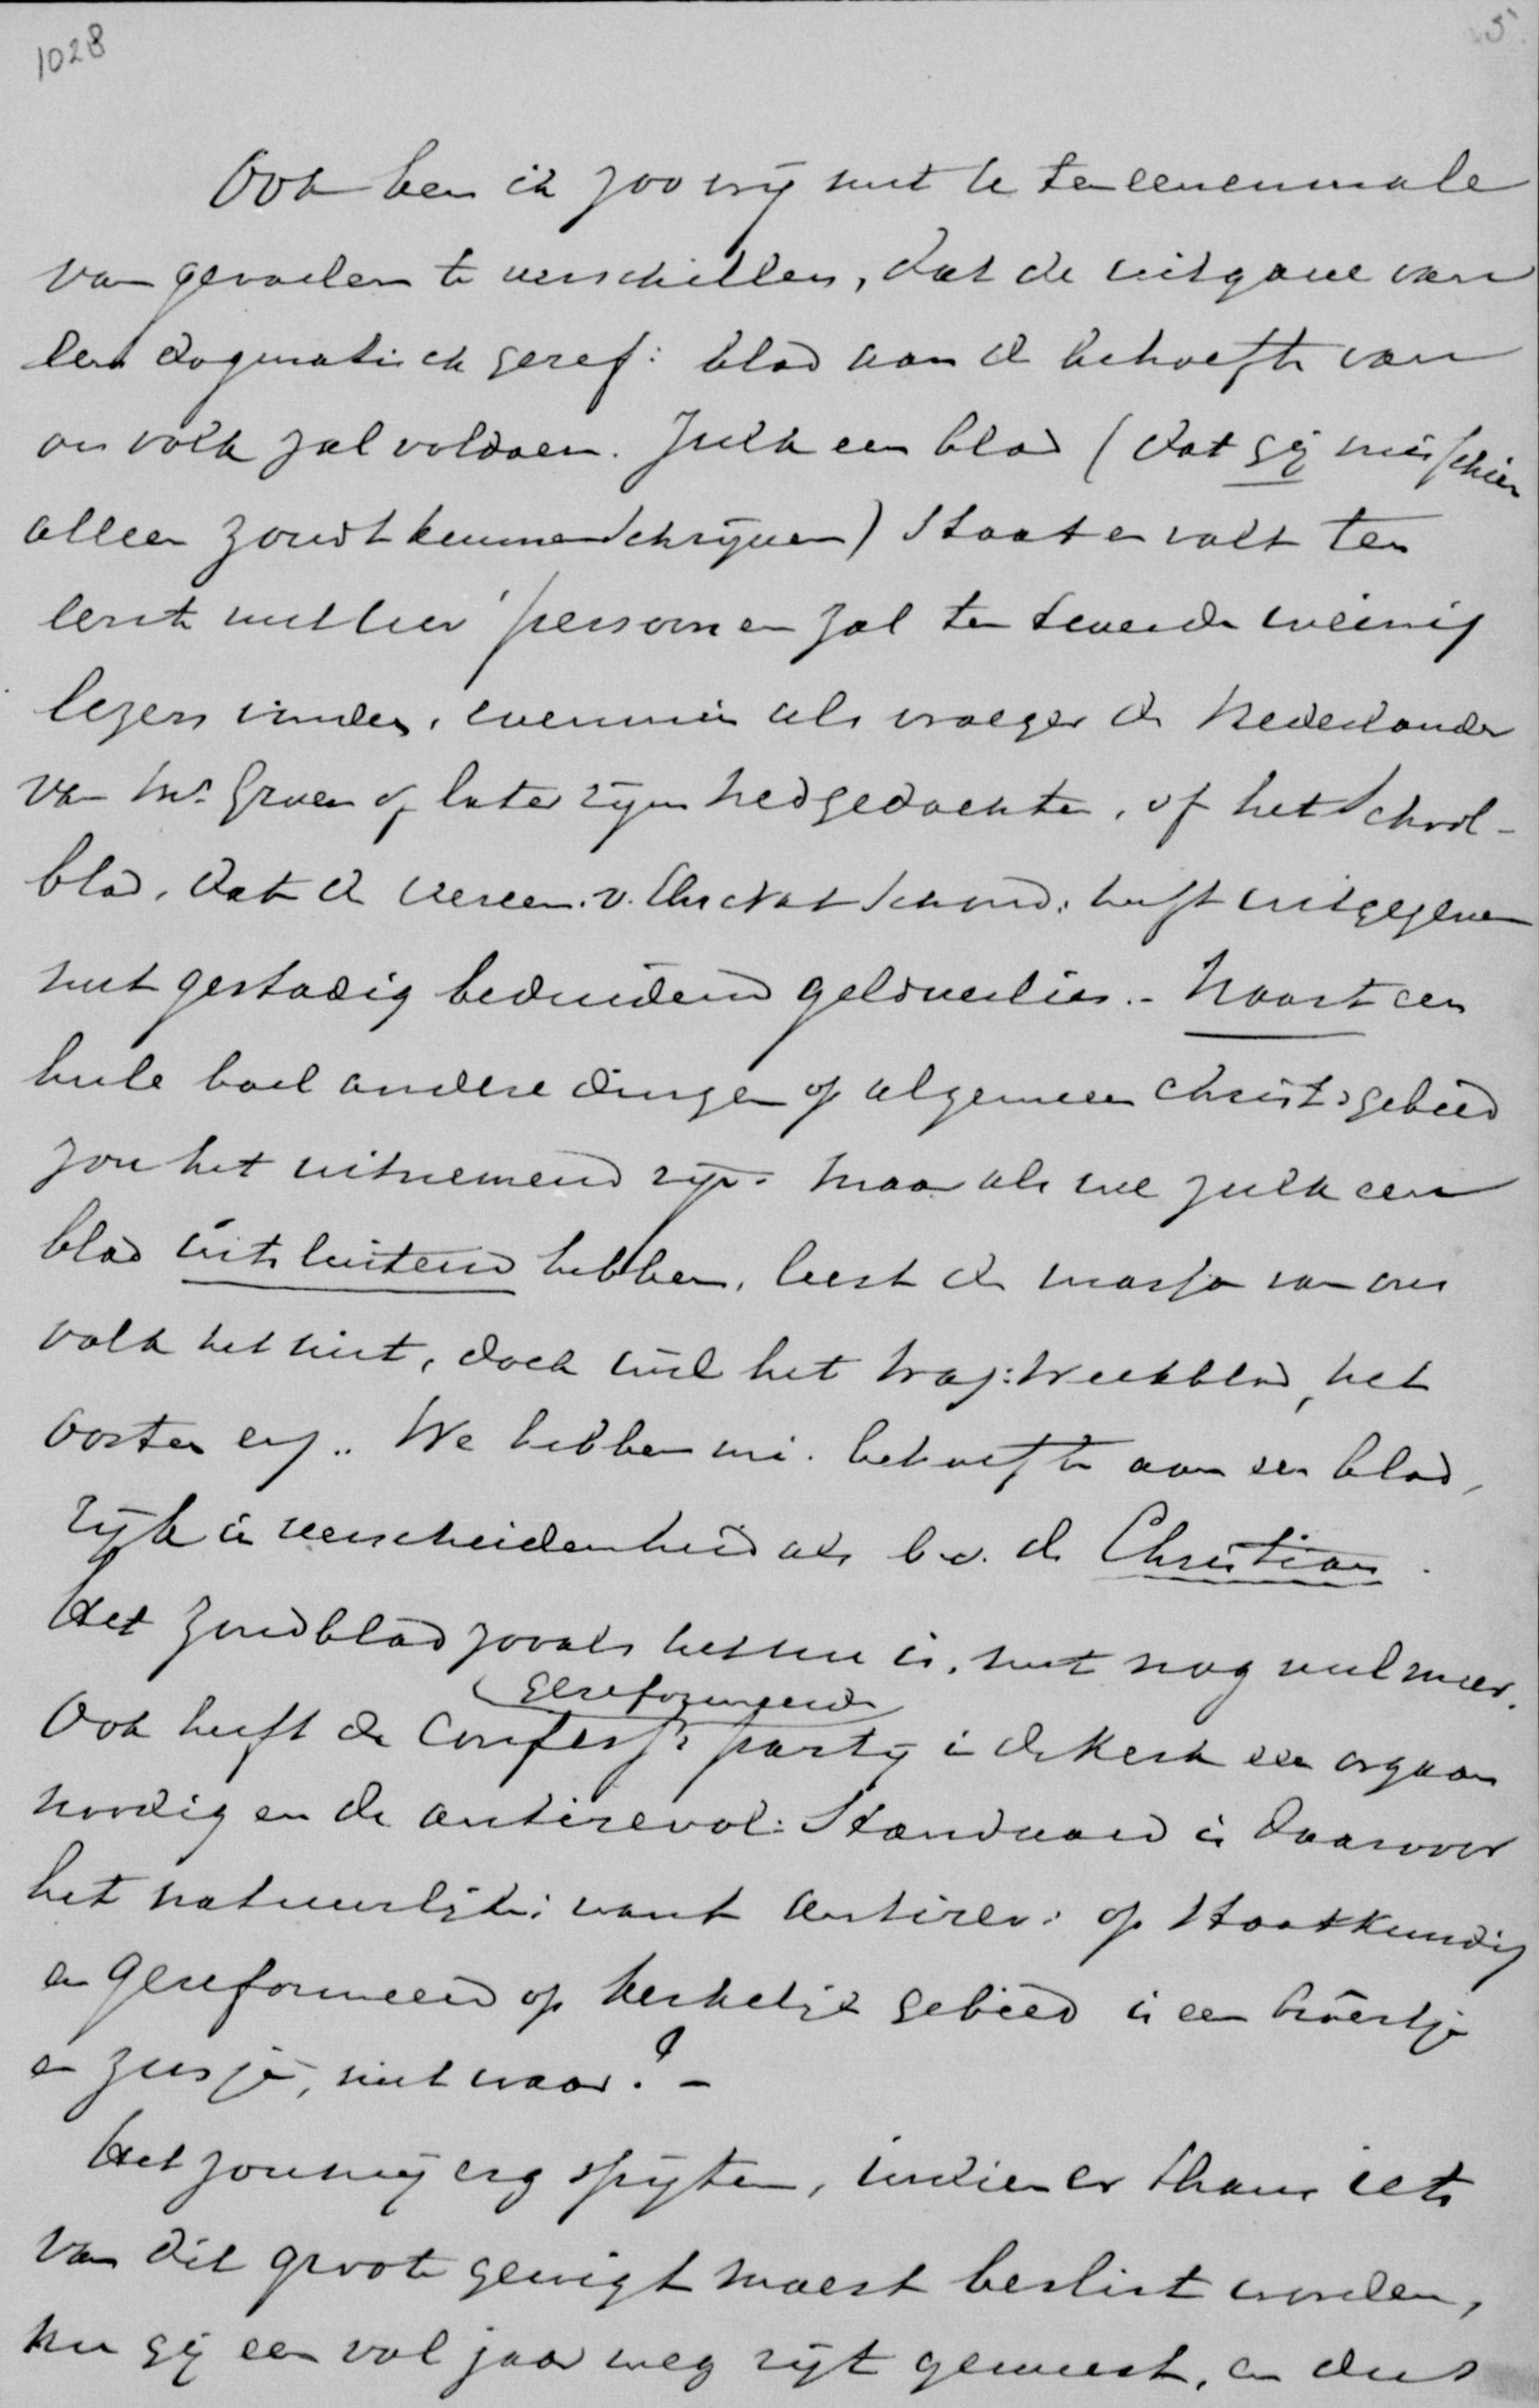 1028
5.
Ook ben ik zoo vrij met U ten eenenmale
van gevoelen te verschillen, dat de uitgave van
een dogmatisch geref: blad aan de behoefte van
ons volk zal voldoen. Zulk een blad (dat gij misschien
alleen zoudt kunnen schrijven) staat en valt ten
eerste met Uw persoon en zal ten tweede weinig
lezers vinden, evenmin als vroeger de Nederlander
van Mr. Groen of later zijn Nedgedachten, of het School-
blad, dat de Vereen. v. Chr Nat Schond: heeft uitgegeven
met gestadig beduidend geldverlies. - Naast een
heele boel andere dingen op algemeen Christ: gebied
zou het uitnemend zijn. Maar als we zulk een
blad uitsluitend hebben, leest de massa van ons
volk het niet, doch wel het Wag: Weekblad, het
Oosten enz.. We hebben m.i. behoefte aan een blad,
rijk in verscheidenheid als b.v. de Christian.
Het Zondblad zooals het nu is, niet nog veel meer.
(gereformeerde
Ook heeft de Confess: partij in de Kerk een orgaan
noodig en de antirevol: Standaard is daarvoor
het natuurlijke; want antirev: op Staatkundig
en gereformeerd op kerkelijk gebied is een broertje
en zusje, niet waar? -
Het zou mij erg spijten, indien er thans iets
van dit groote gewigt moest beslist worden,
nu gij een vol jaar weg zijt geweest, en dus